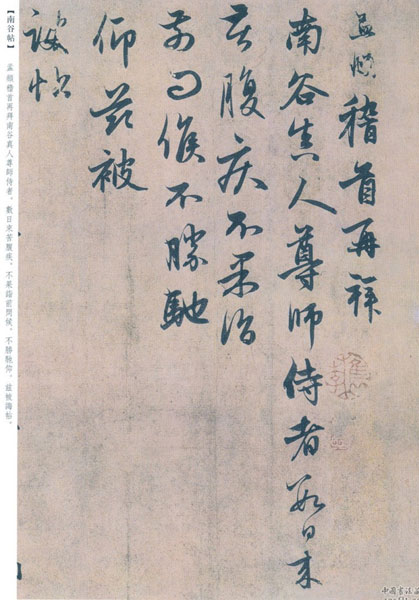 孟頫稽首再拜
南谷真人尊師侍者數日來
苦腹疾不果詣
前问候不勝馳
仰茲被
誨帖
【南谷帖】
孟頫稽首再拜南谷真人尊師侍者。數日來苦腹疾、不果詣前問候、不勝馳仰。茲被誨帖、